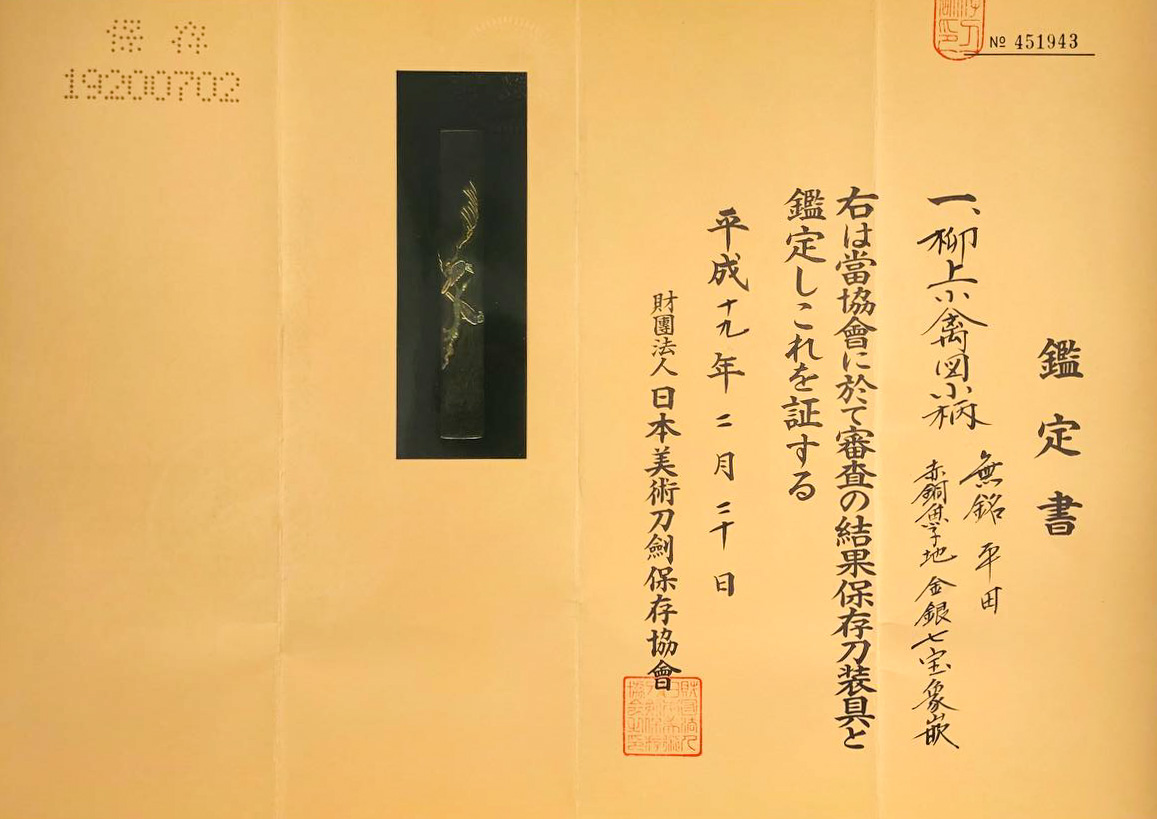 鑑定書
一、柳上小禽図小柄
無銘 平田
赤銅魚子地 金銀七宝象嵌
右は當協會に於て審査の結果保存刀装具と
鑑定しこれを証する
平成十九年二月二十日
財團法人 日本美術刀劍保存協會
№ 451943
保存
19200702